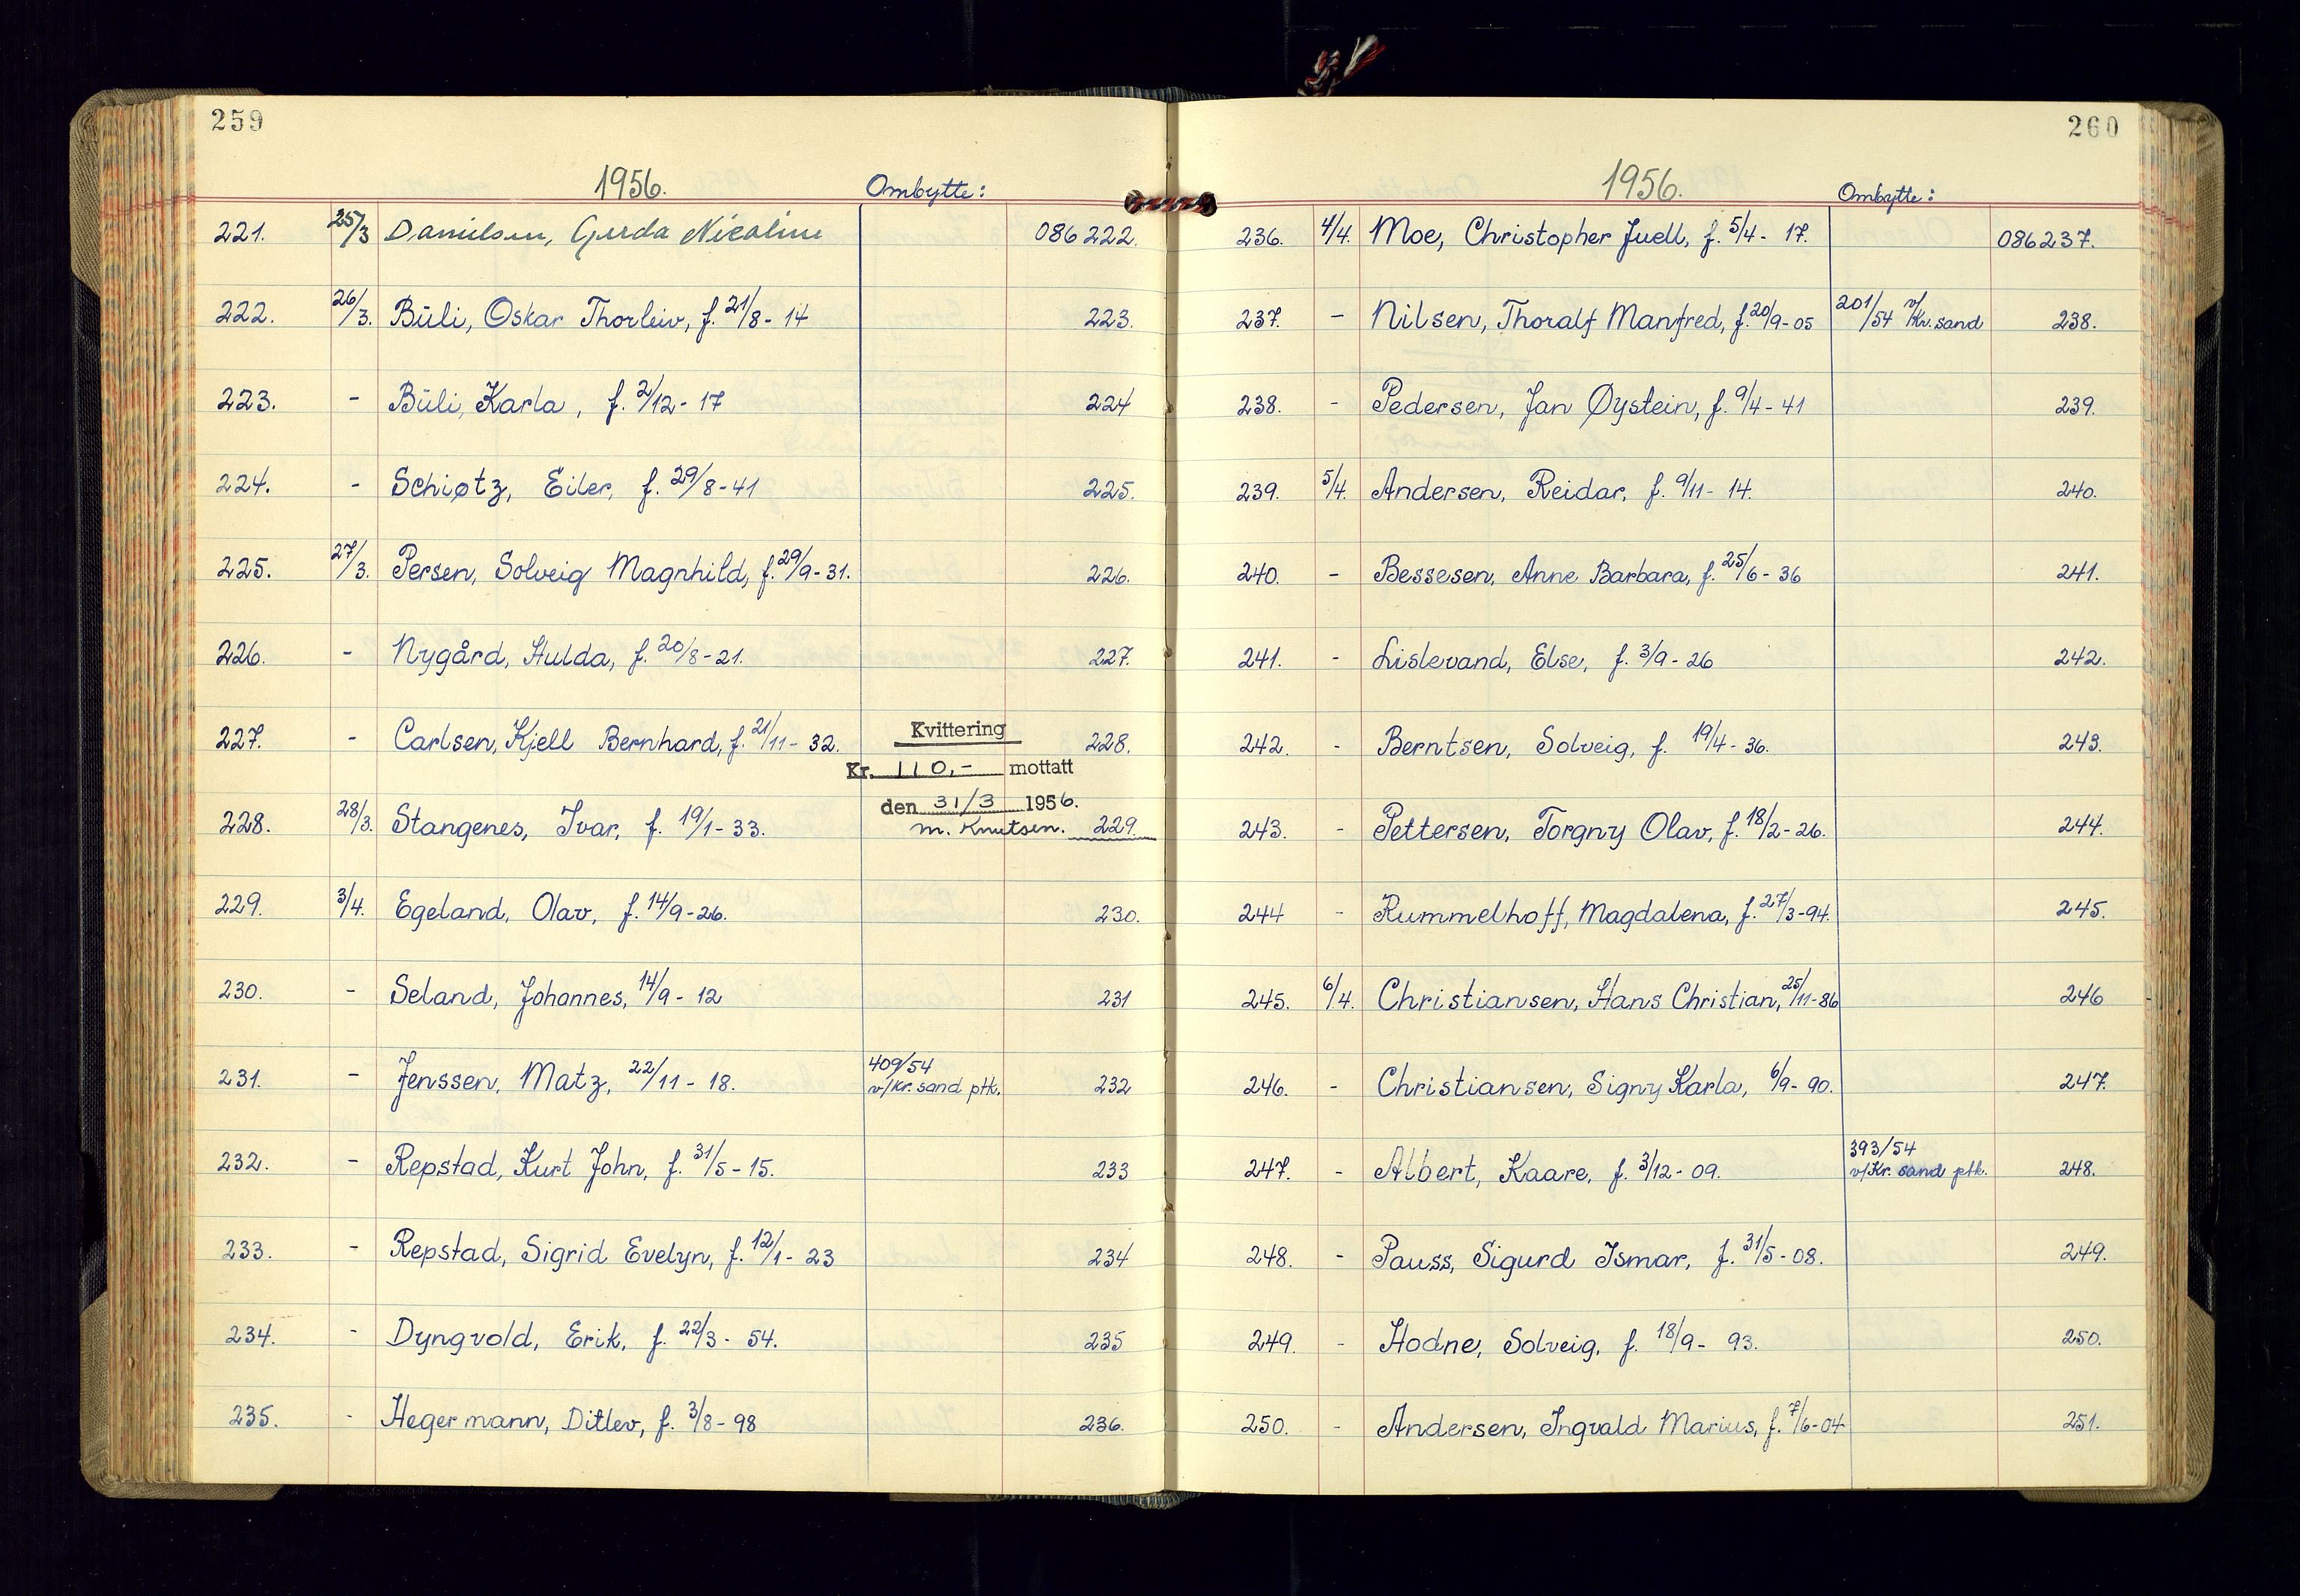 259
1956. Ombytte:
221. 25/3 Danielsen, Gerda Nicoline 086 222.
222. 26/3. Büli, Oskar Thorleiv, f. 21/8 - 14 223.
223. - Büli, Karla, f. 2/12 - 17 224
224. - Schiøtz, Eiler, f. 29/8 - 41 225.
225. 27/3. Persen, Solveig Magnhild, f. 29/9 - 31. 226.
226. - Nygård, Hulda, f. 20/8 - 21. 227.
227. - Carlsen, Kjell Bernhard, f. 21/11 - 32. 228.
Kvittering
Kr. 110,- mottatt
den 31/3 1956.
m. Knutsen.
228. 28/3. Stangenes, Ivar, f. 19/1 - 33. 229.
229. 3/4. Egeland, Olav, f. 14/9 - 26. 230.
230. - Seland, Johannes, 14/9 - 12 231
231. - Jenssen, Matz, 22/11 - 18. 409/54 v/Kr. sand ptk. 232
232. - Repstad, Kurt John, f. 31/5 - 15. 233
233. - Repstad, Sigrid Evelyn, f. 12/1 - 23 234
234. - Dyngvold, Erik, f. 22/3 - 54. 235
235. - Hegermann, Ditlev, f. 3/8 - 98 236.
260
1956. Ombytte:
236. 4/4. Moe, Christopher Juell, f. 5/4 - 17. 086237.
237. - Nilsen, Thoralf Manfred, f. 20/9 - 05 201/54 v/Kr. sand 238.
238. - Pedersen, Jan Øystein, f. 9/4 - 41 239.
239. 5/4. Andersen, Reidar, f. 9/11 - 14. 240.
240. - Bessesen, Anne Barbara, f. 25/6 - 36 241.
241. - Lislevand, Else, f. 3/9 - 26 242.
242. - Berntsen, Solveig, f. 19/4 - 36. 243.
243. - Pettersen, Torgny Olav, f. 18/2 - 26. 244.
244 - Rummelhoff, Magdalena, f. 27/3 - 94. 245.
245. 6/4. Christiansen, Hans Christian, 25/11 - 86 246
246. - Christiansen, Signy Karla, 6/9 - 90. 247.
247. - Albert, Kaare, f. 3/12 - 09. 393/54 v/Kr. sand ptk. 248.
248. - Pauss, Sigurd Ismar, f. 31/5 - 08. 249.
249. - Hodne, Solveig, f. 18/9 - 93. 250.
250. - Andersen, Ingvald Marius, f. 7/6 - 04 251.